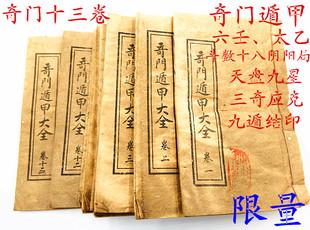 奇门十三卷
奇门遁甲
六壬、太乙
斗数十八阴阳局
天盘九星
三奇应克
九遁结印
奇門遁甲大全
卷十三
奇門遁甲大全
卷十二
卷三
奇門遁甲大全
卷二
奇門遁甲大全
卷一
限量